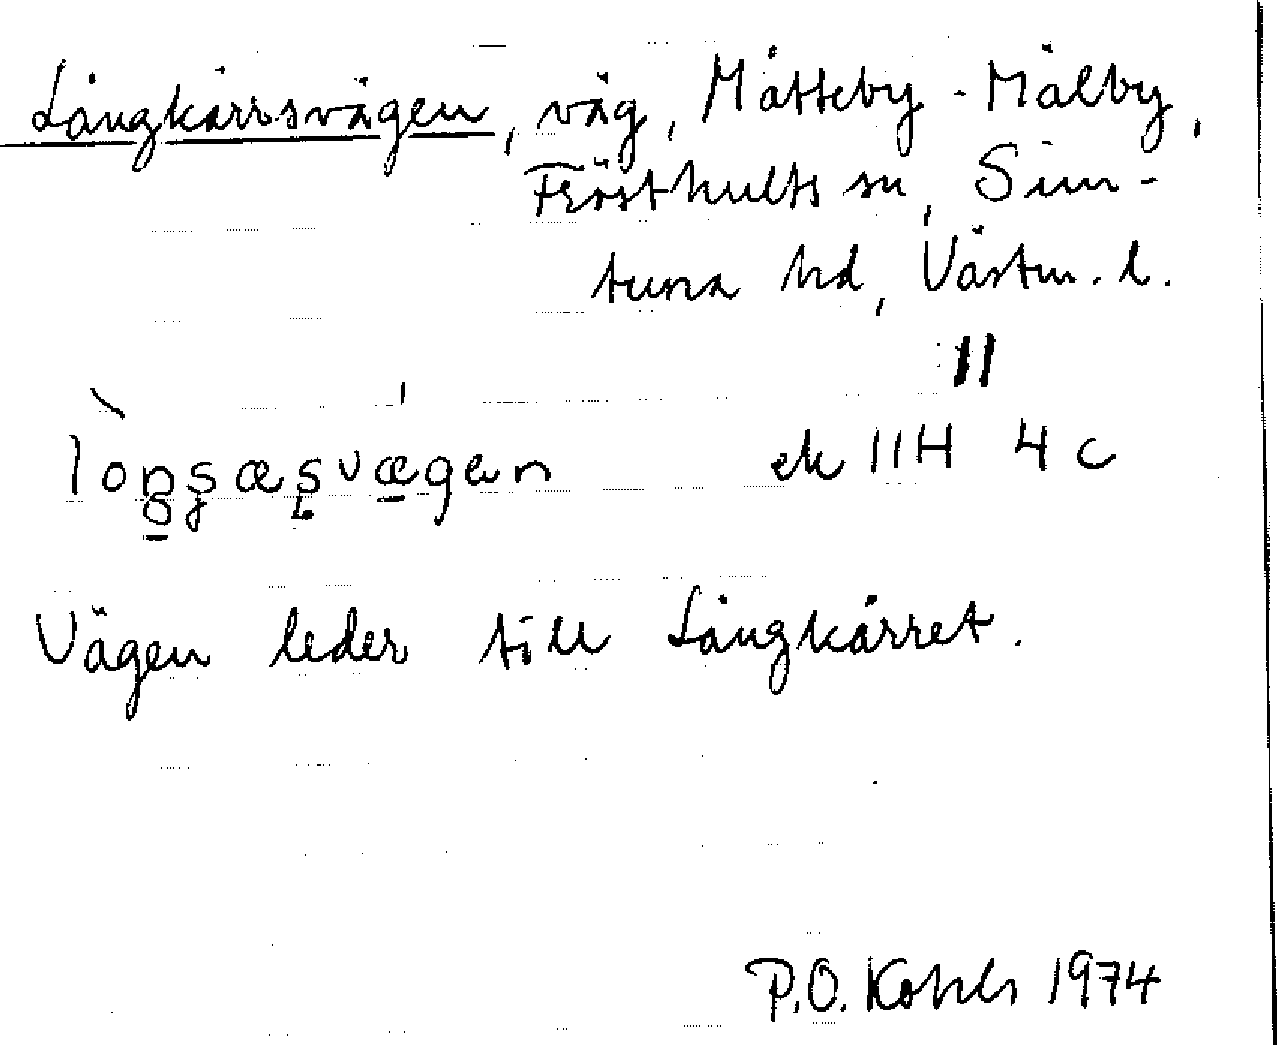 Långkärrsvägen, väg, Måtteby - Mälby,
Frösthults sn, Sim-
tuna hd, Västm. l.
11
ek 11H 4c
Vägen leder till Långkärret.
P.O. Kohls 1974